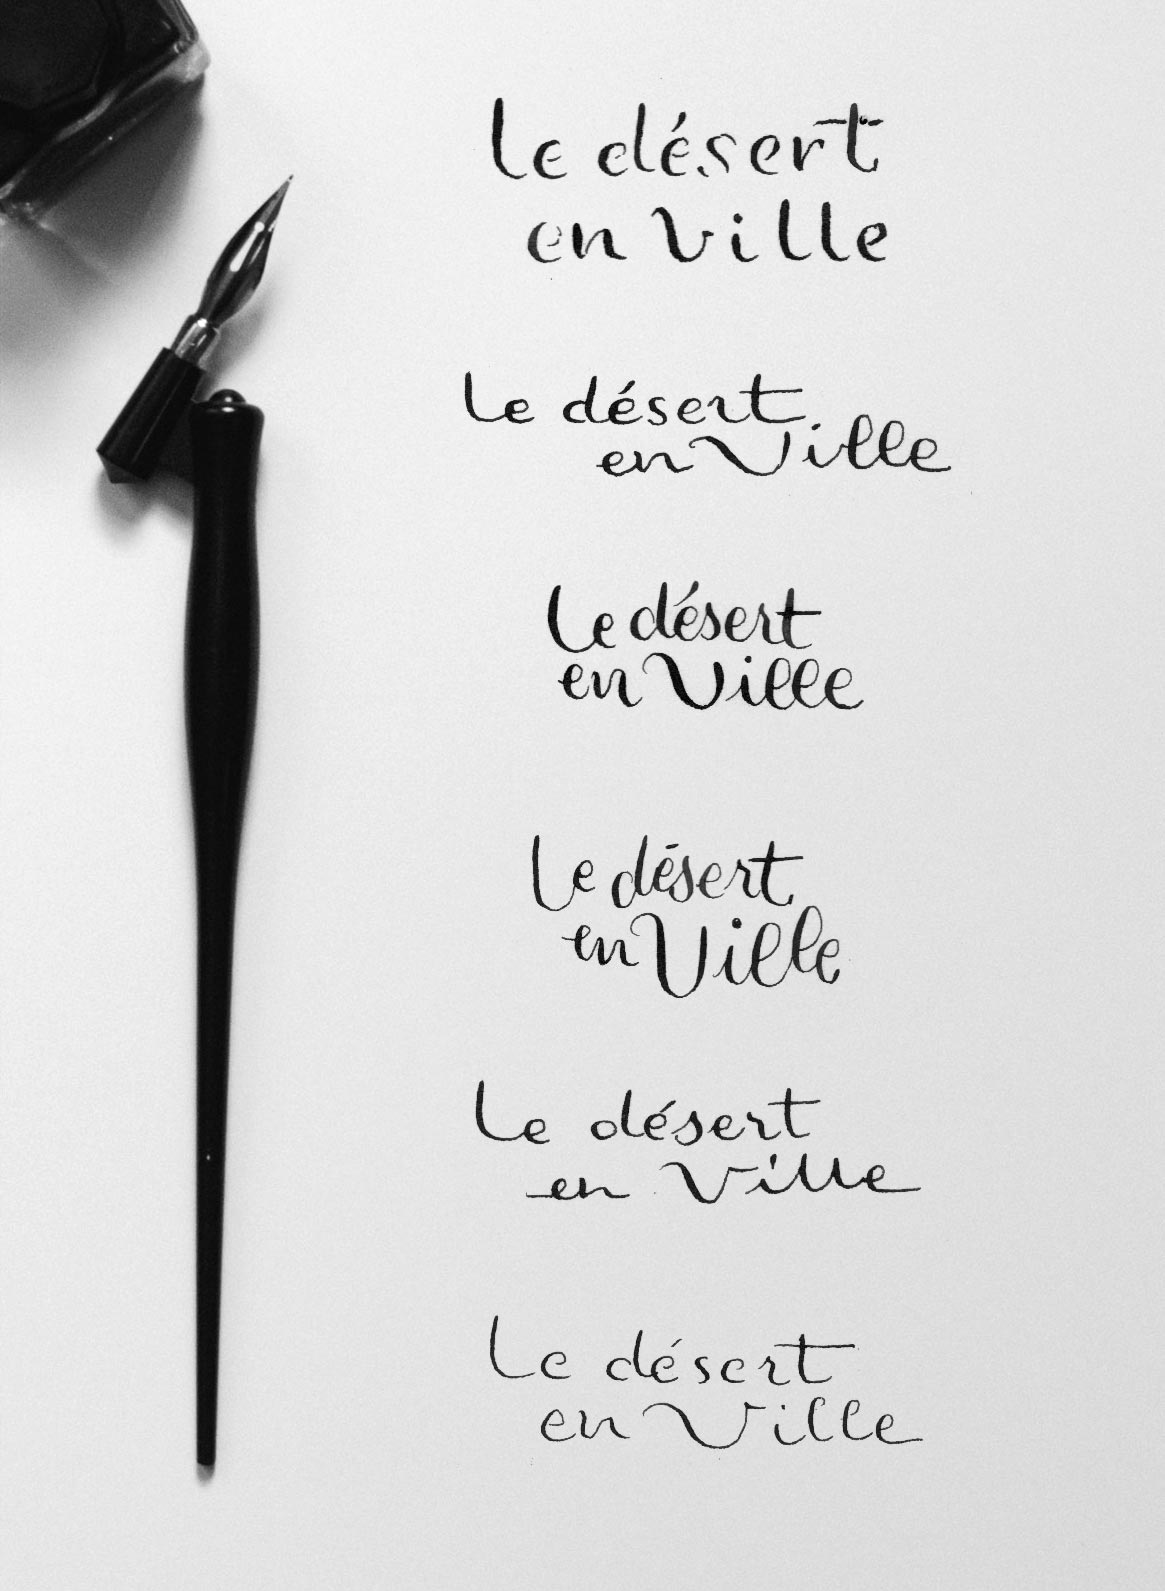 Le désert
en Ville
Le désert
en Ville
Le désert
en Ville
Le désert
en Ville
Le désert
en Ville
Le désert
en Ville